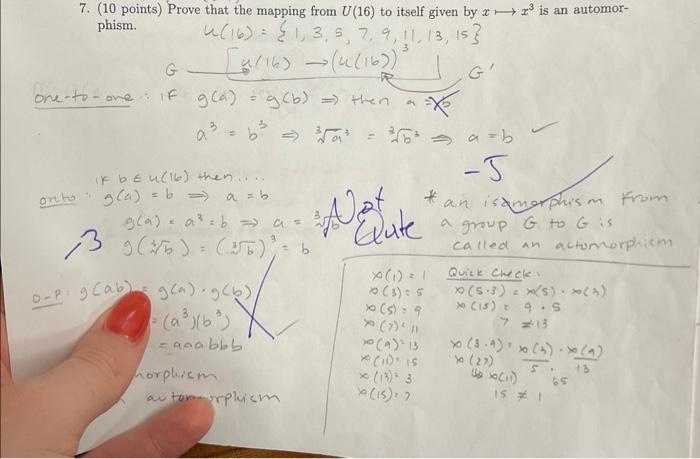 7. (10 points) Prove that the mapping from U(16) to itself given by x ⟼ x³ is an automor-
phism.
U(16) = {1, 3, 5, 7, 9, 11, 13, 15}
G [U(16) → (U(16))³] G'
One-to-one: if g(a) = g(b) ⇒ then a = b
a³ = b³ ⇒ ∛a³ = ∛b³ ⇒ a = b ✓
-5
if b ∈ U(16) then....
onto: g(a) = b ⇒ a = b
g(a) = a³ = b ⇒ a = ∛b
g(∛b) = (∛b)³ = b
-3
Not Quite
* an isomorphism from
a group G to G is
called an automorphism
O-P: g(ab) = g(a) · g(b)
= (a³)(b³)
= aaabbb
morphism
automorphism
∝(1) = 1
∝(3) = 5
∝(5) = 9
∝(7) = 11
∝(9) = 13
∝(11) = 15
∝(13) = 3
∝(15) = 7
Quick Check:
∝(5·3) = ∝(5) · ∝(3)
∝(15) = 9 · 5
7 ≠ 13
∝(3·9) = ∝(3) · ∝(9)
∝(27) 5 · 13
∝(11) 65
15 ≠ 1